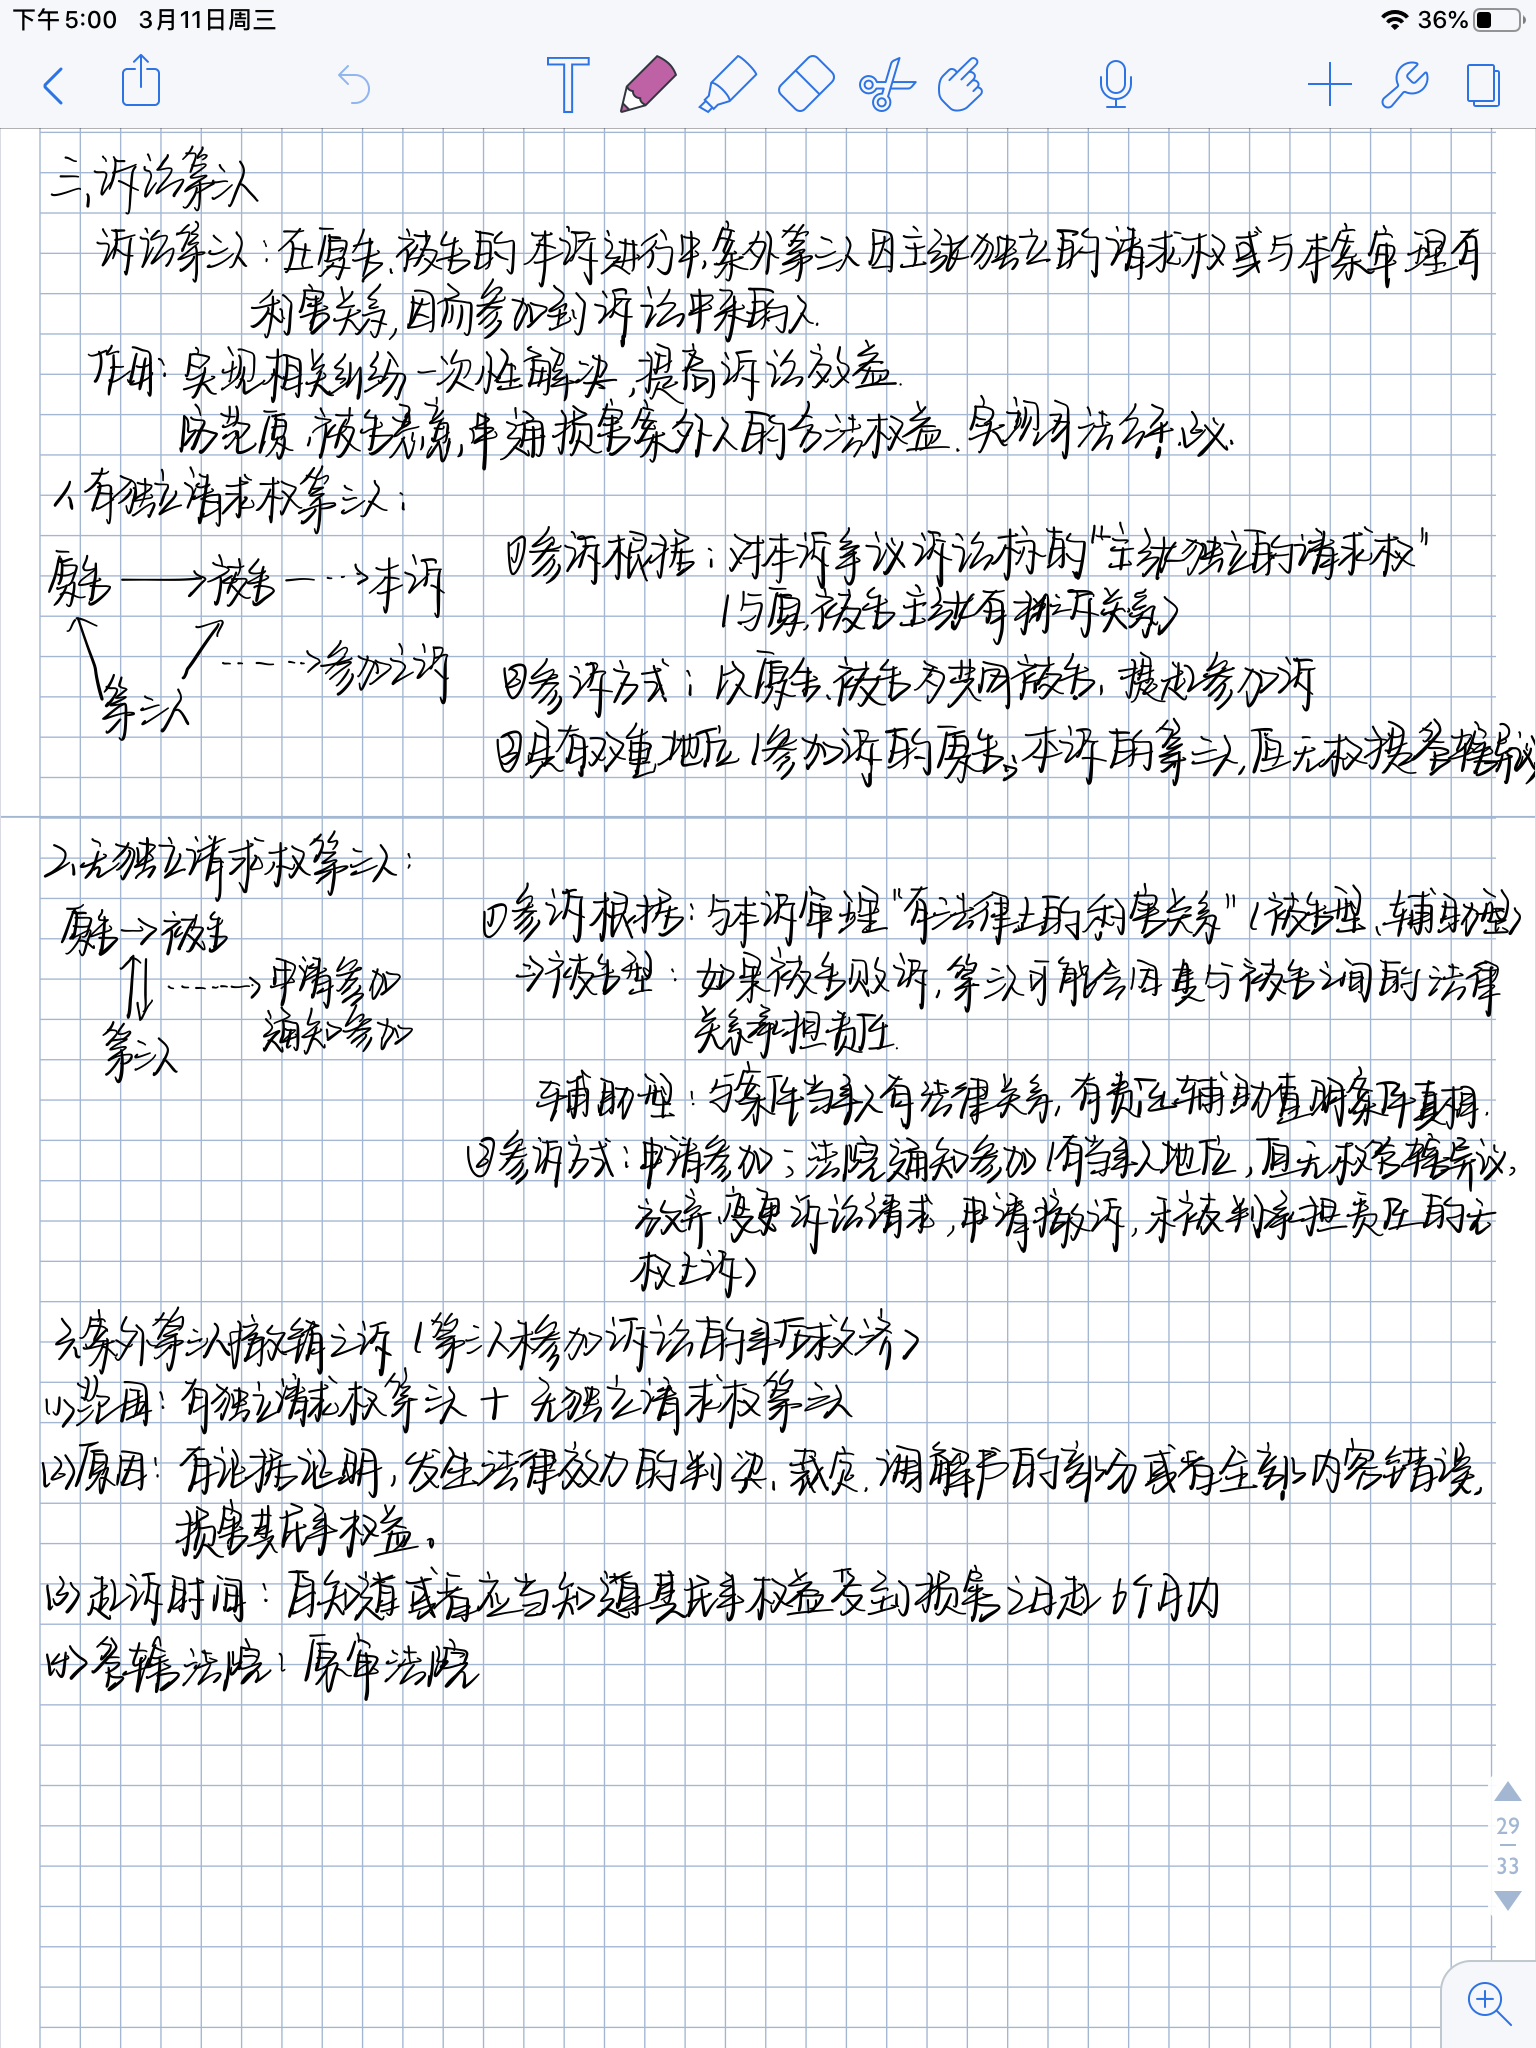 下午5:00 3月11日周三
36%
三、诉讼第三人
诉讼第三人:在原告、被告的本诉进行中,案外第三人因主张独立的请求权或与本案审理有
利害关系,因而参加到诉讼中来的人.
作用:实现相关纠纷一次性解决,提高诉讼效益.
防范原、被告恶意串通损害案外人的合法权益.实现司法公平.正义.
1、有独立请求权第三人:
原告→被告--->本诉
第三人
--->参加之诉
①参诉根据:对本诉争议诉讼标的"主张独立的请求权"
(与原、被告主张有排斥关系)
②参诉方式:以原告、被告为共同被告,提起参加诉
③具有双重地位(参加诉的原告;本诉的第三人,且无权提管辖异议)
2、无独立请求权第三人:
原告→被告
第三人
--->申请参加
通知参加
①参诉根据:与本诉审理"有法律上的利害关系"(被告型、辅助型)
→被告型:如果被告败诉,第三人可能会因其与被告之间的法律
关系承担责任.
辅助型:与案件当事人有法律关系,有责任辅助查明案件真相.
②参诉方式:申请参加;法院通知参加(有当事人地位,且无权管辖异议,
放弃、变更诉讼请求,申请撤诉,未被判承担责任的无
权上诉)
3、案外第三人撤销之诉(第三人未参加诉讼的事后救济)
(1)范围:有独立请求权第三人+无独立请求权第三人
(2)原因:有证据证明,发生法律效力的判决、裁定.调解书的部分或者全部内容错误,
损害其民事权益。
(3)起诉时间:自知道或者应当知道其民事权益受到损害之日起6个月内
(4)管辖法院:原审法院
29
33